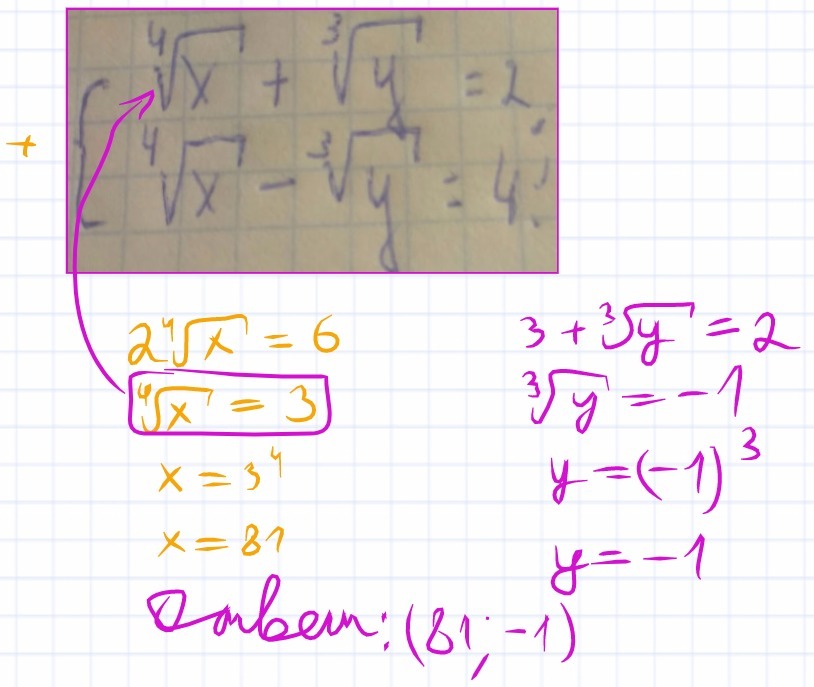 +
{ ⁴√x + ³√y = 2
⁴√x − ³√y = 4
2⁴√x = 6
⁴√x = 3
x = 3⁴
x = 81
3 + ³√y = 2
³√y = −1
y = (−1)³
y = −1
Ответ: (81; −1)